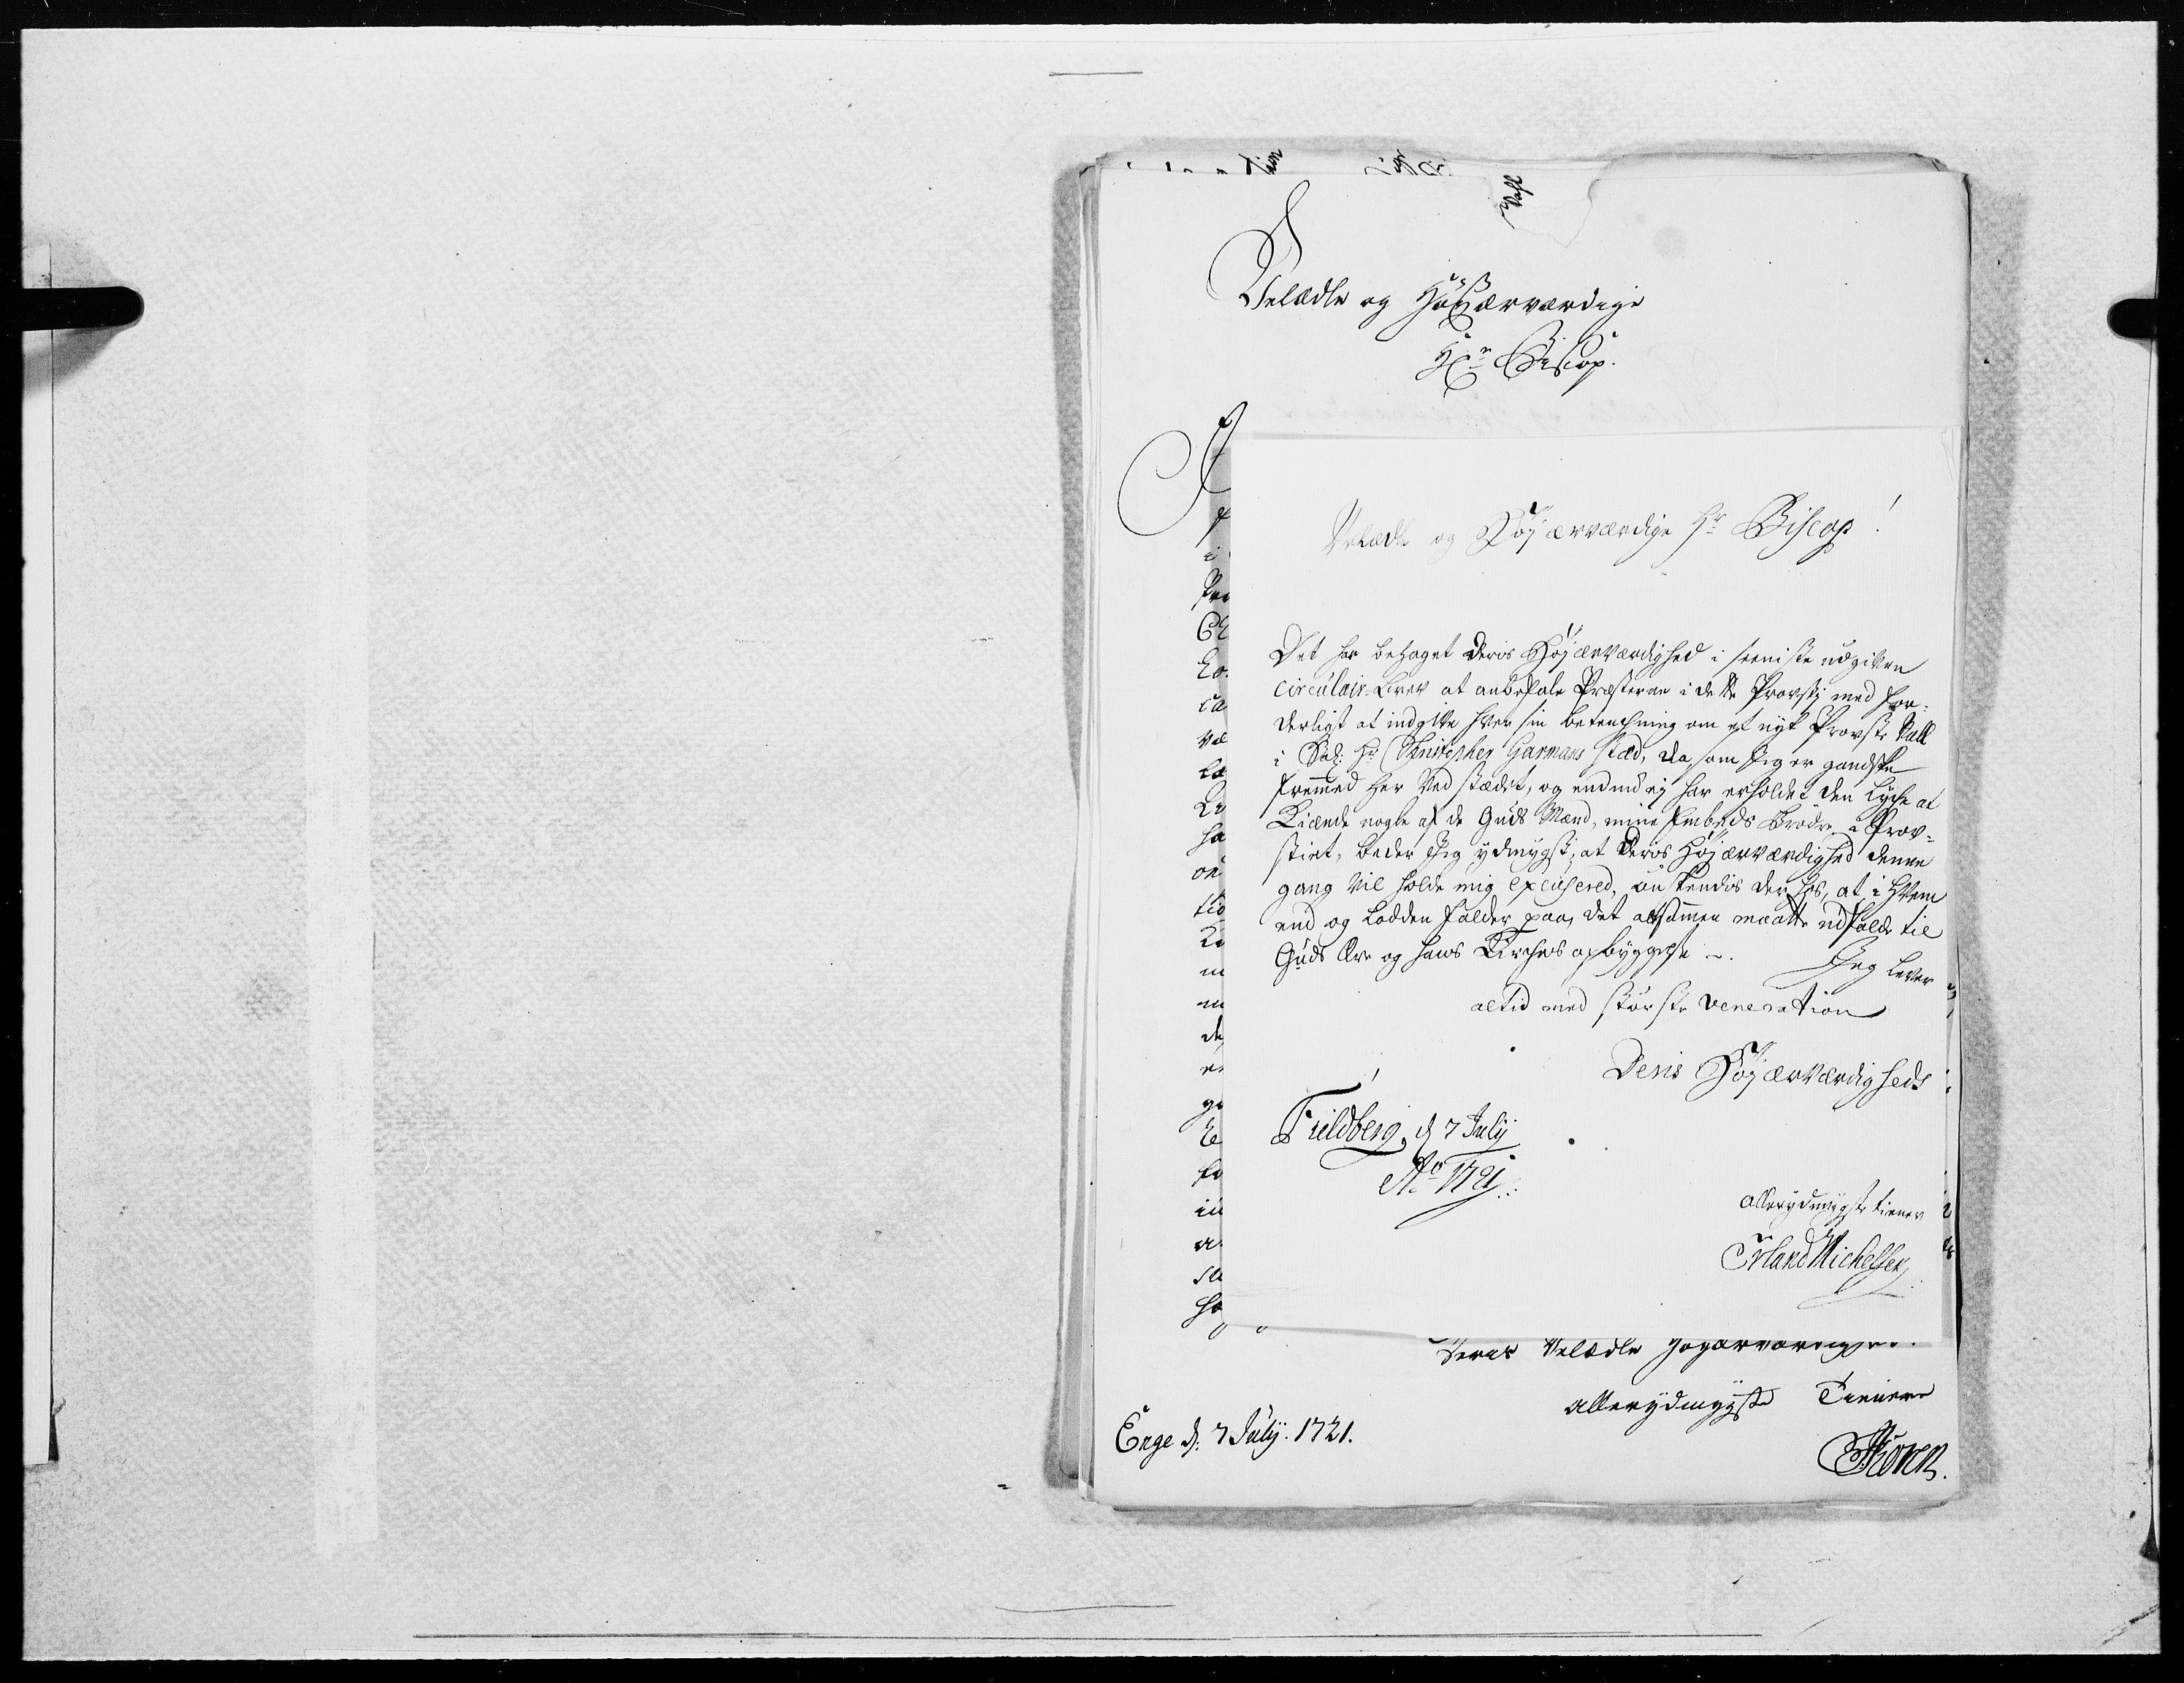 Velædle og Højærværdige
Hr. Biscop.
Velædle og Højærværdige Hr Biscop!
Det har behaget Deris Højærværdighed i seeniste udgivne
circulair-brev at anbefale Præsterne i dette Provstj med for-
derligst at indgive hver sin betenchning om et nyt Provste Kall
i Sal: Hr Christopher Garmans stæd, da, som Jeg er gandske
fremmed her ved stædet, og endnu ej har erholdet den Lyche at
Kiænde nogle af de Guds Mænd, mine Embeds Brødre i Prov-
stiet, beder Jeg ydmygst, at Deris Højærværdighed denne
gang vil holde mig excusered, ønskendis der hos, at i hvem
end og Lodden falder paa, det altsammen maatte udfalde til
Guds Ære og hans Kirches opbyggelse. Jeg lever
altid med største veneration
Deris Højærværdigheds
Fieldberg, d 7 July
Ao 1721.
allerydmygste tiener
Erland Michelsen
Deris Velædle Højærværdighed.
allerydmygste Tienere
Enge d: 7 July. 1721.